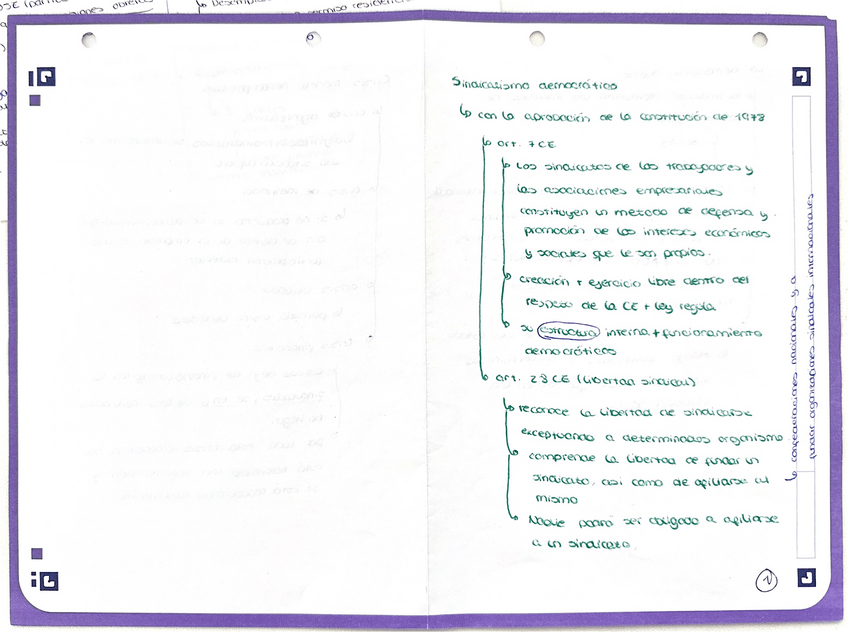 Desemple
permiso residencia
Sindicalismo democrático
↳ con la aprobación de la constitución de 1978
↳ art. 7 CE
↳ Los sindicatos de los trabajadores y
las asociaciones empresariales
constituyen un metodo de defensa y
promoción de los intereses económicos
y sociales que le son propios.
↳ creación + ejercicio libre dentro del
respeto de la CE + ley regula
↳ su estructura interna + funcionamiento
democráticos
↳ art. 28 CE (libertad sindical)
↳ reconoce la libertad de sindicarse
exceptuando a determinados organismo
↳ comprende la libertad de fundar un
sindicato, así como de afiliarse al
mismo
↳ Nadie podrá ser obligado a afiliarse
a un sindicato.
↳ confederaciones nacionales y a
fundar organizaciones sindicales internacionales
1